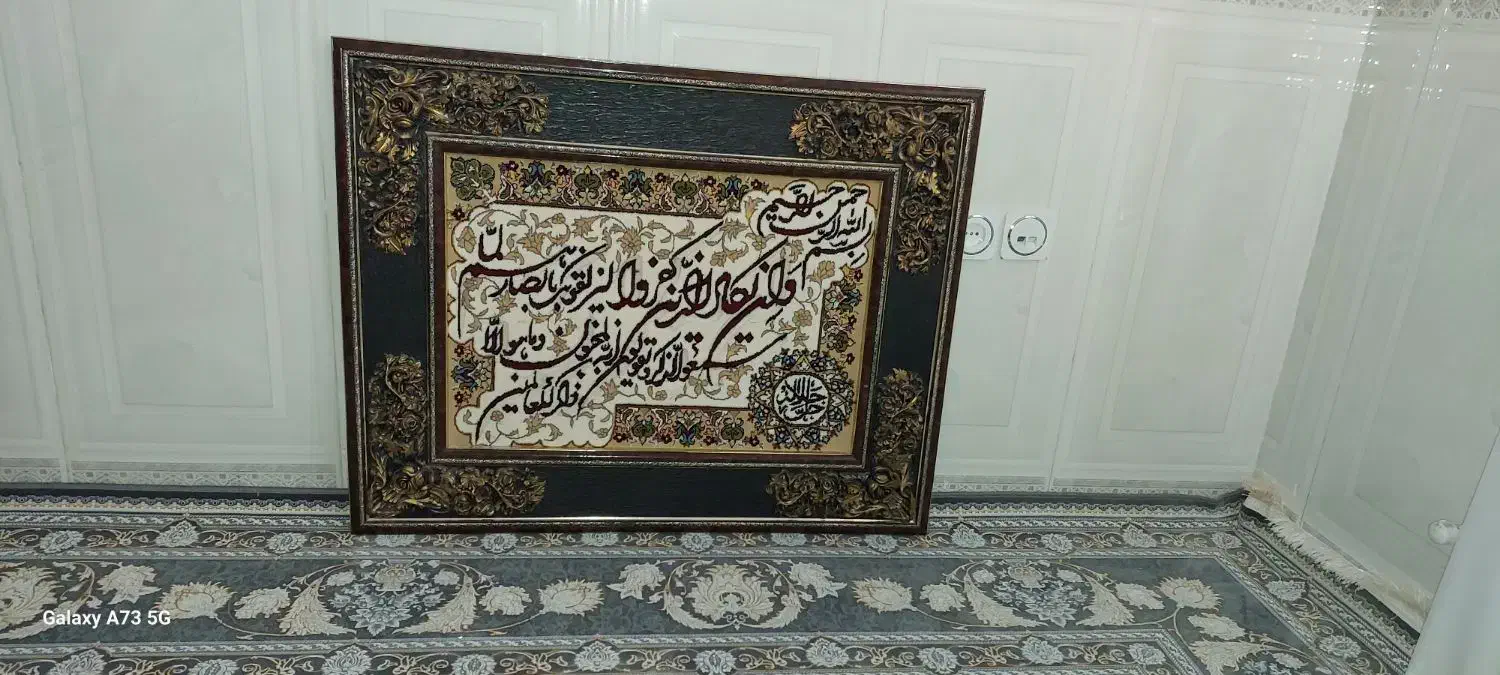 بسم الله الرحمن الرحیم
وان یکاد الذین کفروا لیزلقونک بابصارهم لما
سمعوا الذکر و یقولون انه لمجنون وما هو الا
ذکر للعالمین
جل جلاله
Galaxy A73 5G